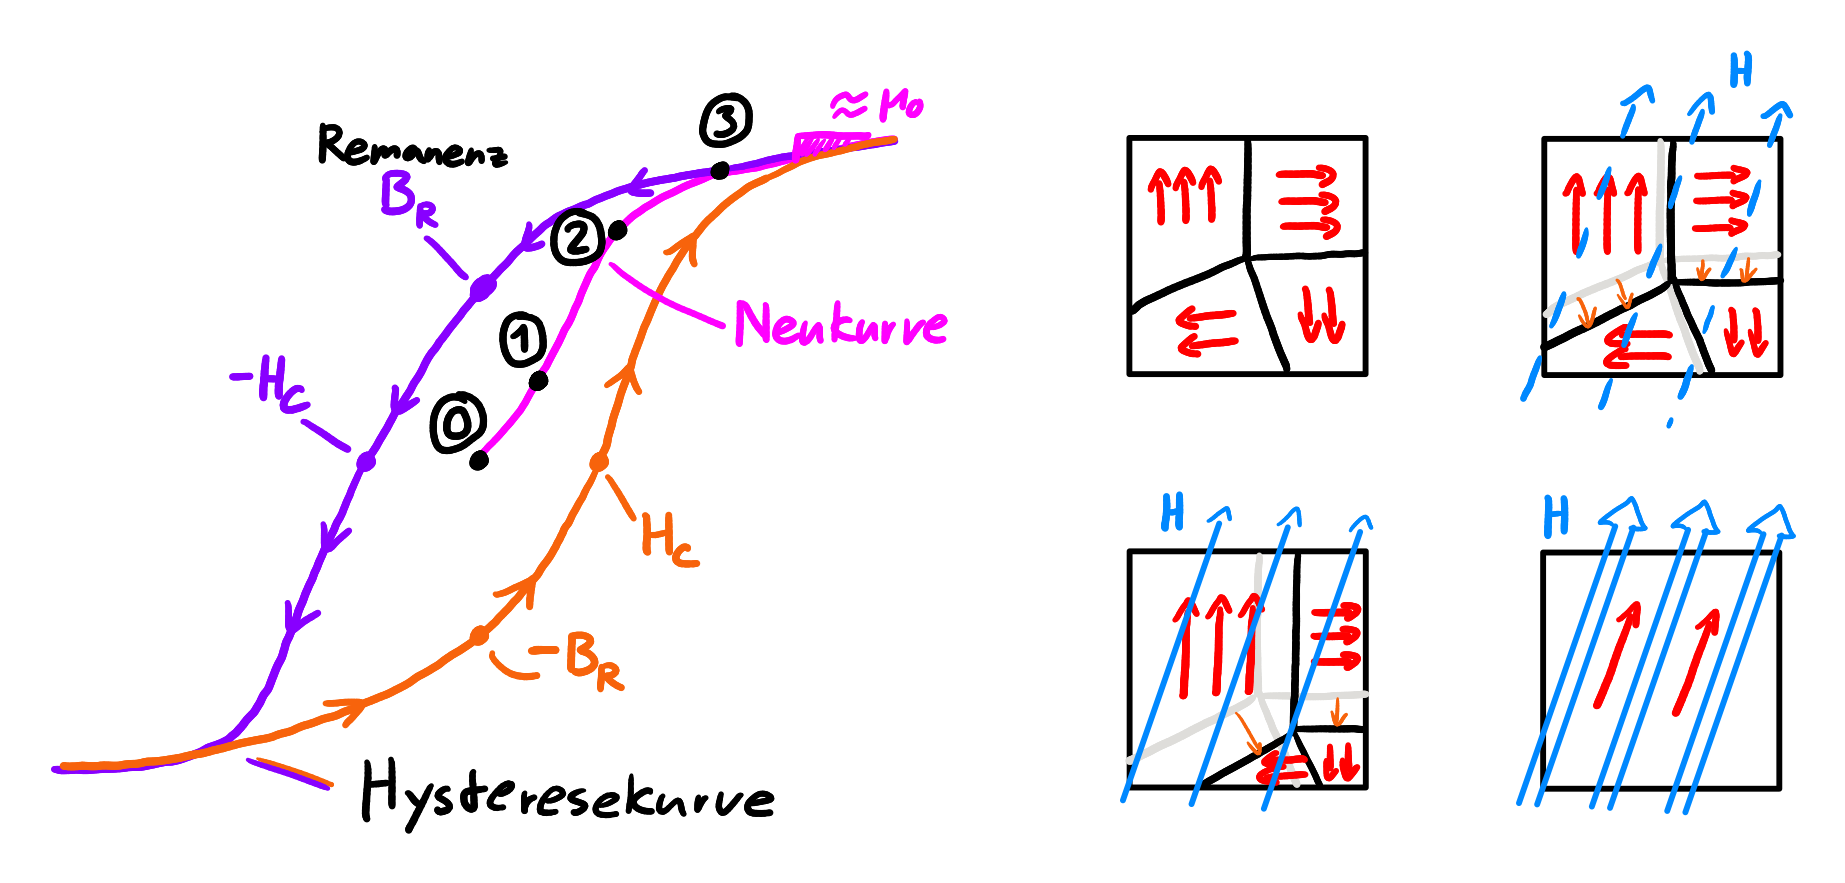 ≈ μ₀
③
Remanenz
B_R
②
Neukurve
①
-H_C
⓪
H_C
-B_R
Hysteresekurve
H
H
H